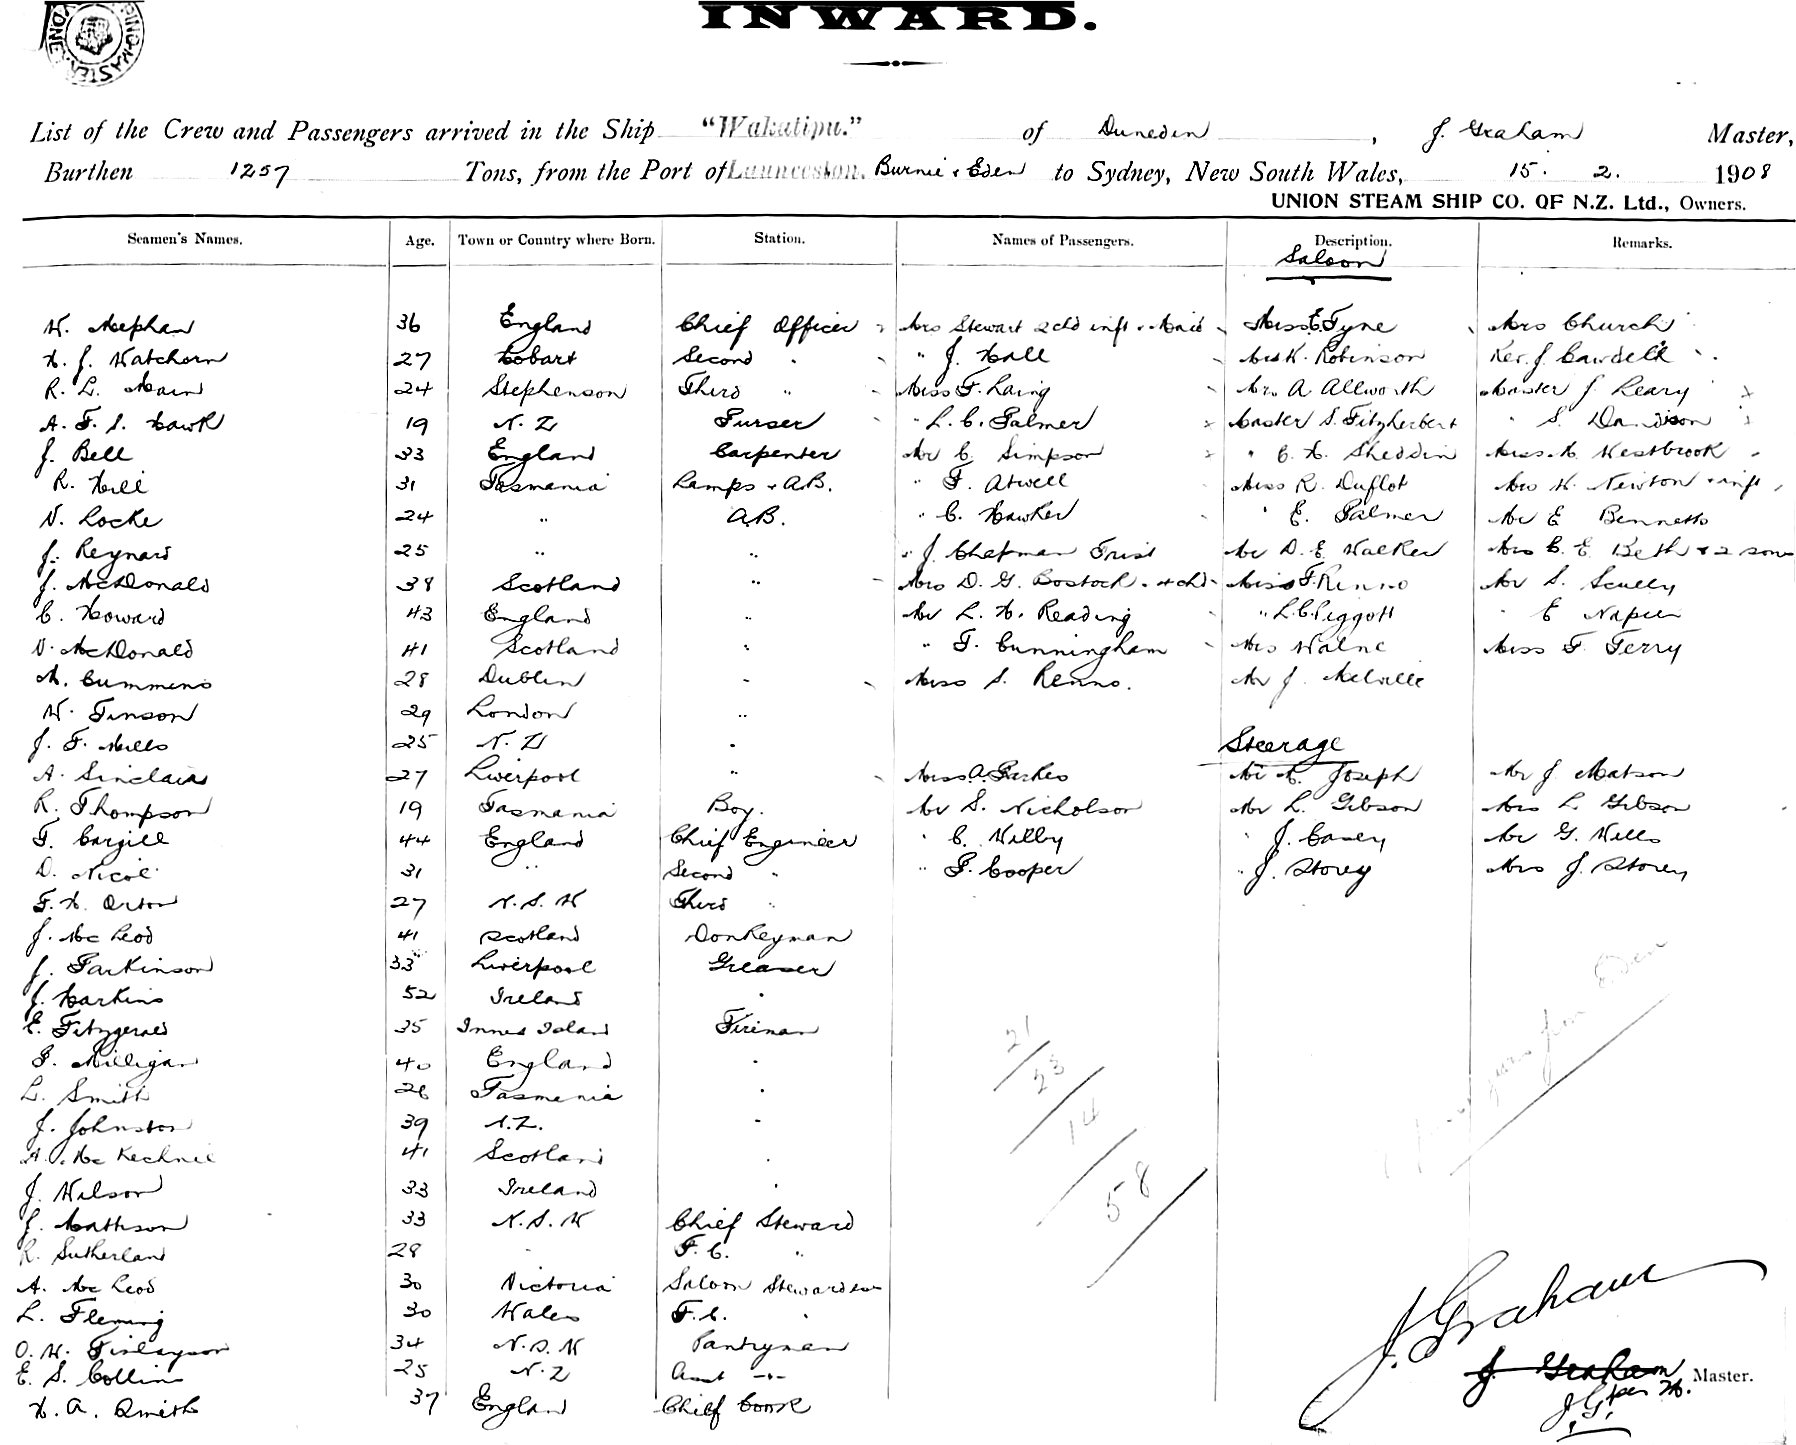 INWARD.
List of the Crew and Passengers arrived in the Ship "Wakatipu." of Dunedin, J. Graham Master,
Burthen 1257 Tons, from the Port of Launceston. Burnie & Eden to Sydney, New South Wales, 15. 2. 1908
UNION STEAM SHIP CO. OF N.Z. Ltd., Owners.
Seamen's Names. Age. Town or Country where Born. Station. Names of Passengers. Description. Remarks.
Saloon
W. Mephan 36 England Chief Officer Mrs Stewart 2 chd inft & Maid Miss E. Tyne Mrs Church
H. J. Watchorn 27 Hobart Second " " J. Hall Miss K. Robinson Rev. J. Cawdell
R. L. Main 24 Stephenson Third " Miss F. Laing Mrs A Allworth Master J Leary
A. F. S. Hawk 19 N. Z Purser " L. C. Palmer Master S. Fitzherbert " S. Davidson
J. Bell 33 England Carpenter Mr C. Simpson " C. H. Sheddin Miss H. Westbrook
R. Hill 31 Tasmania Lamps & A.B. " F. Atwell Miss R. Duflot Mrs H. Newton & inft
V. Locke 24 " A.B. " C. Hawker " E. Palmer Mr E Bennetts
J. Reynard 25 " " " J. Chapman Frist Mr D. E. Walker Mrs C. E. Beth & 2 sons
J. McDonald 38 Scotland " Mrs D. G. Bostock & 4 chd Miss F. Renno Mr S. Scully
C. Howard 43 England " Mr L. H. Reading " L. C. Piggott " E Napier
V. McDonald 41 Scotland " " F. Cunningham Mrs Walne Miss F Ferry
M. Cummens 28 Dublin " Miss S. Renno. Mr J. Melville
W. Tinson 29 London "
J. F. Mills 25 N. Z "
Steerage
A. Sinclair 27 Liverpool " Miss A. Parkes Mr H. Joseph Mr J. Matson
R. Thompson 19 Tasmania Boy. Mr S. Nicholson Mr L. Gibson Mrs L. Gibson
F. Cargill 44 England Chief Engineer " C. Wilby " J. Casey Mr G. Wells
D. Nicol 31 " Second " " F. Cooper " J. Storey Mrs J. Storey
F. H. Orton 27 N. S. W Third "
J. McLeod 41 Scotland Donkeyman
J. Parkinson 33 Liverpool Greaser
J. Harkins 52 Ireland "
E. Fitzgerald 35 Innes Island Fireman
F. Milligan 40 England "
L. Smith 26 Tasmania "
J. Johnston 39 N.Z. "
A. McKechnie 41 Scotland "
J. Wilson 33 Ireland "
J. Mattison 33 N. S. W Chief Steward
R. Sutherland 28 " F. C. "
A. McLeod 30 Victoria Saloon Stewardess
L. Fleming 30 Wales F. C. "
O. W. Finlayson 34 N. S. W Pantryman
E. S. Collins 25 N. Z Asst -"-
H. A. Smith 37 England Chief Cook
21
23
14
58
from Eden
J. Graham
J. Graham Master.
J. G. per H.